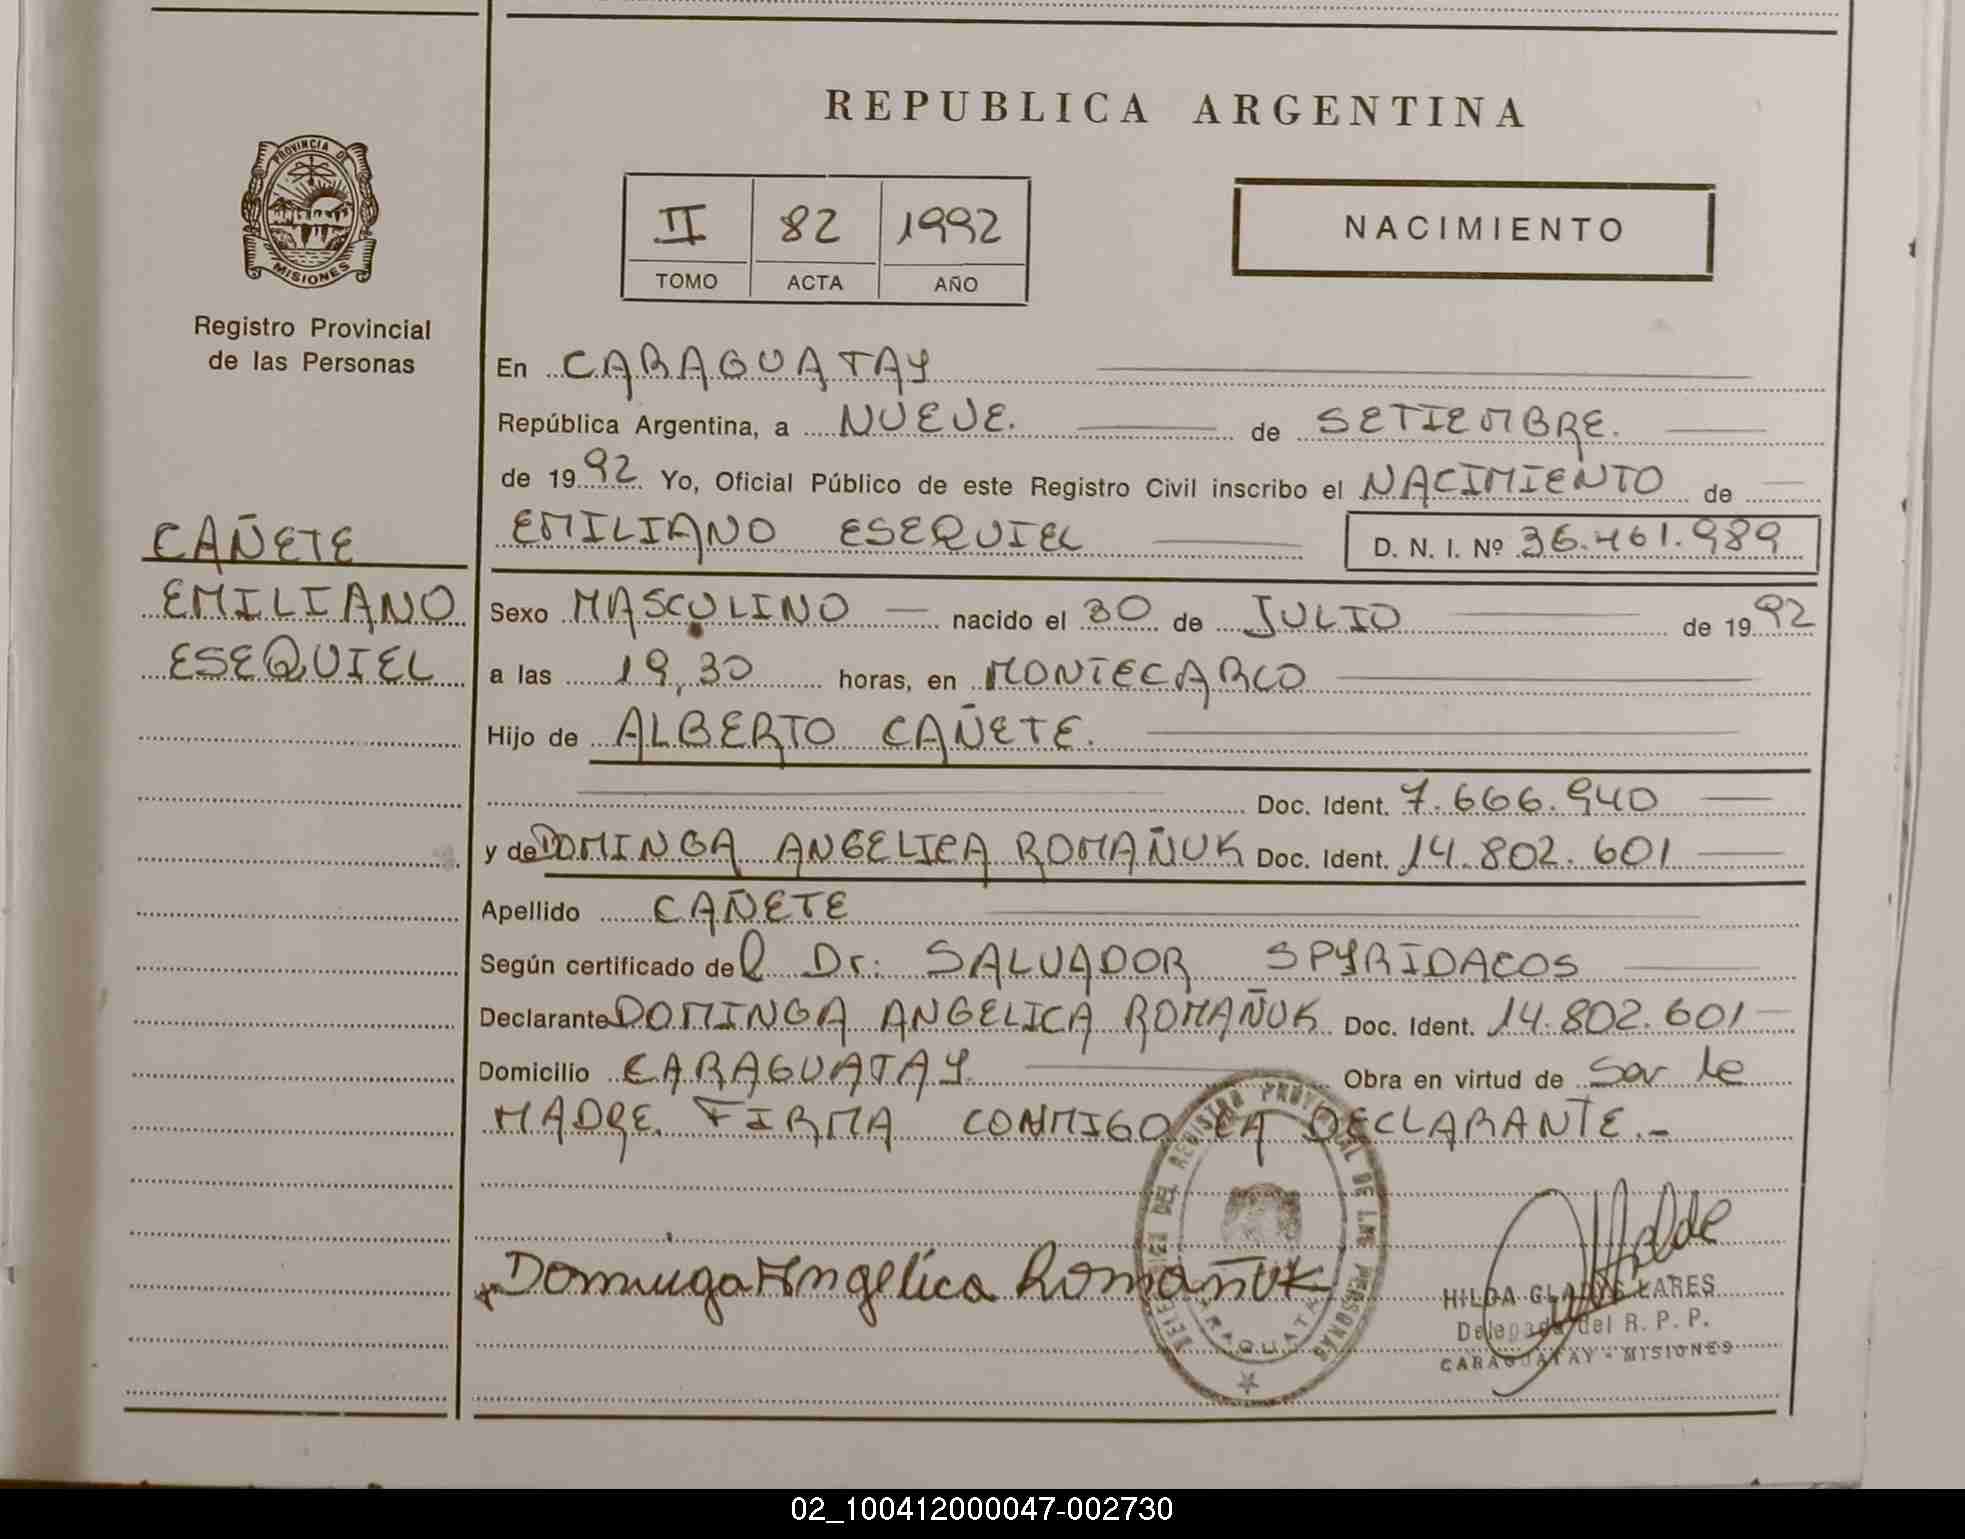 REPUBLICA ARGENTINA
PROVINCIA DE
MISIONES
Registro Provincial
de las Personas
II 82 1992
TOMO ACTA AÑO
NACIMIENTO
En CARAGUATAY
República Argentina, a NUEVE. de SETIEMBRE.
de 1992 Yo, Oficial Público de este Registro Civil inscribo el NACIMIENTO de
CAÑETE
EMILIANO
ESEQUIEL
EMILIANO ESEQUIEL D. N. I. Nº 36.461.989
Sexo MASCULINO nacido el 30 de JULIO de 1992
a las 19,30 horas, en MONTECARLO
Hijo de ALBERTO CAÑETE.
Doc. Ident. 7.666.940
y de DOMINGA ANGELICA ROMAÑUK Doc. Ident. 14.802.601
Apellido CAÑETE
Según certificado del Dr. SALVADOR SPYRIDACOS
Declarante DOMINGA ANGELICA ROMAÑUK Doc. Ident. 14.802.601
Domicilio CARAGUATAY. Obra en virtud de Ser la
MADRE. FIRMA CONMIGO LA DECLARANTE.-
DEL REGISTRO PROVINCIAL DE LAS PERSONAS
Dominga Angelica Romañuk
HILDA GLADYS LARES
Delegada del R. P. P.
CARAGUATAY - MISIONES
02_100412000047-002730